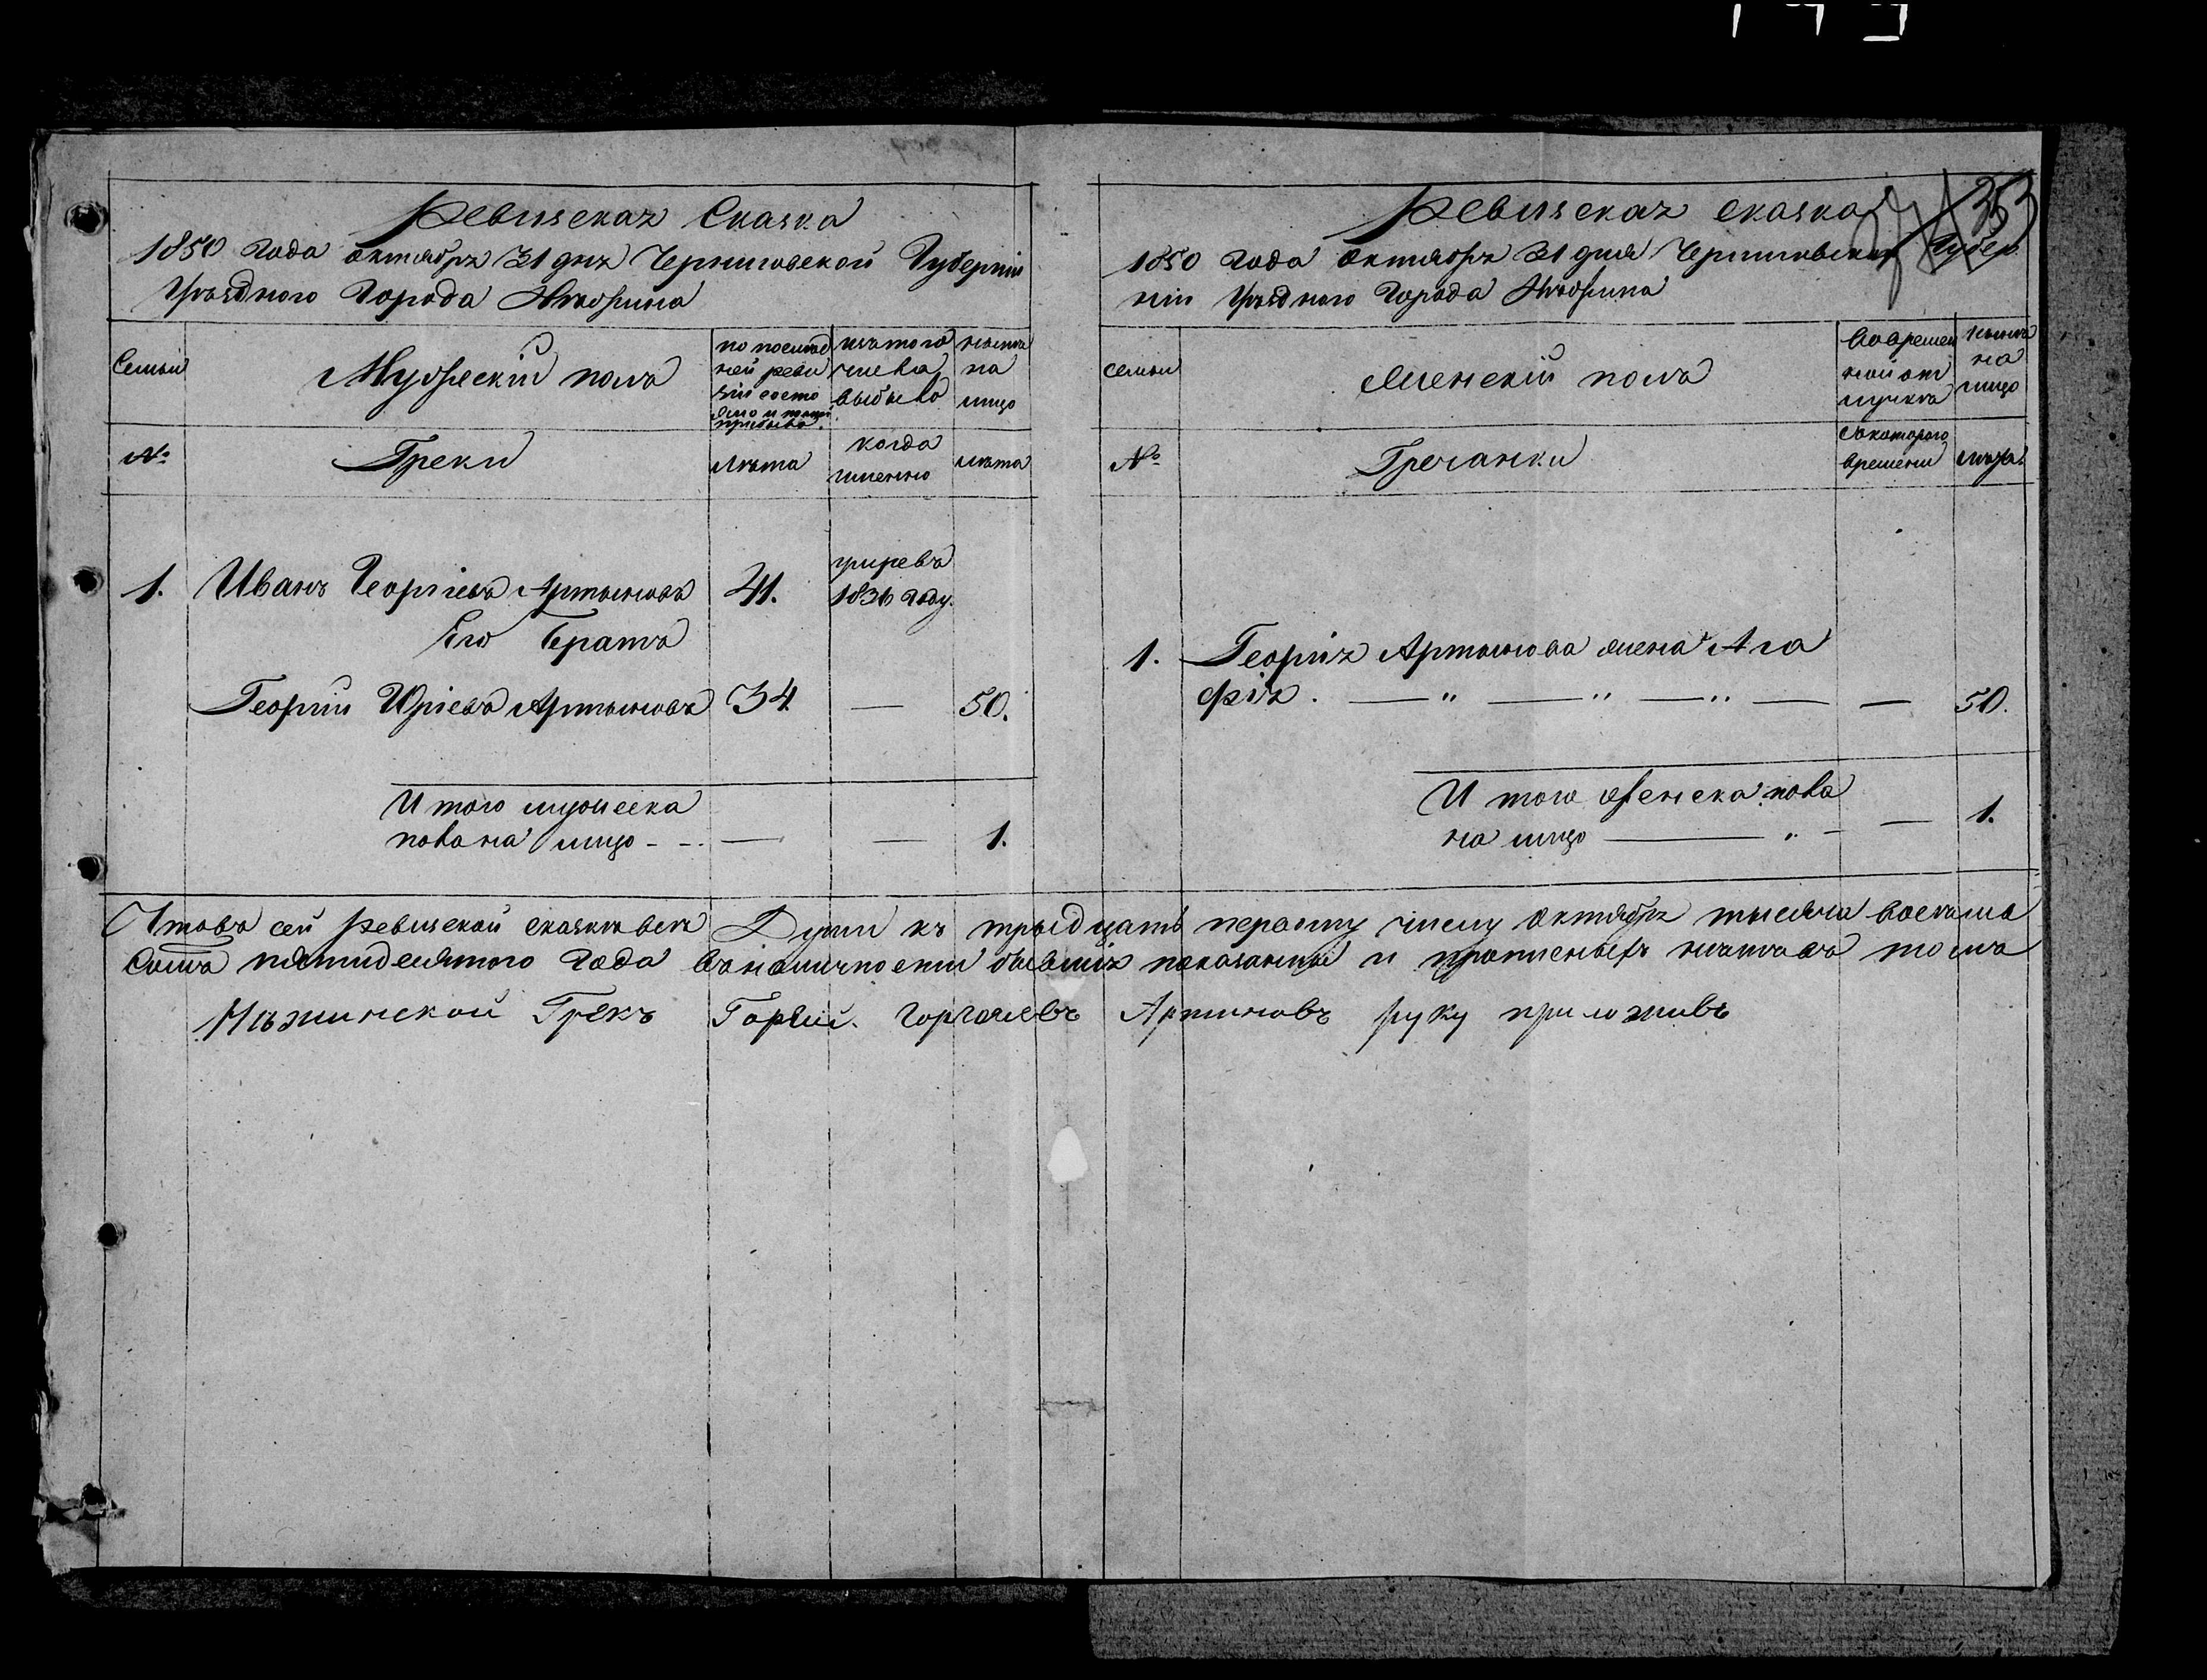 Ревизская Сказка
1850 Года октября 31 дня Черниговской Губерніи
Уѣзднаго Города Нѣжина
Семьи
Мужескій полъ
по послѣд
ней реви
зіи состо
яло и послѣ
прибыло.
изъ того
числа
выбыло
нынѣ
на
лицо
№
Греки
лѣта
когда
именно
лѣта
1. Иванъ Георгіевъ Артыновъ 41. умревъ
1836 году.
Его Братъ
Георгій Юріевъ Артыновъ 34 — 50.
И того мужеска
пола на лицо - - - — — 1.
Ревизская сказка
1850 Года Октября 31 дня Черниговской Губер
ніи Уѣзднаго Города Нѣжина
253
семьи
Женскій полъ
Вовремен
ной от
лучкѣ
нынѣ
на
лицо
№
Гречанки
Съкотораго
времени
лѣта.
1. Георгія Артынова жена Ага
фія. — " — " — " — — 50.
И того женска пола
на лицо — " - — 1.
Чтовъ сей Ревизской сказкѣ всѣ Души къ трыдцать первому числу Октября тысяча восемъ
Сотъ пятидесятого Года въналичности бывшія показанны и прописныхъ нѣтъ въ томъ
Нѣжинской Грекъ Горгий Горгаиевъ Артиновъ руку приложивъ